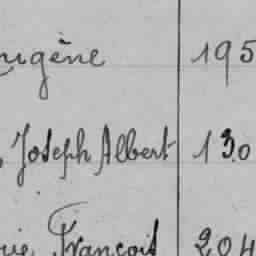 ugène 195
Joseph Albert 130
François 204